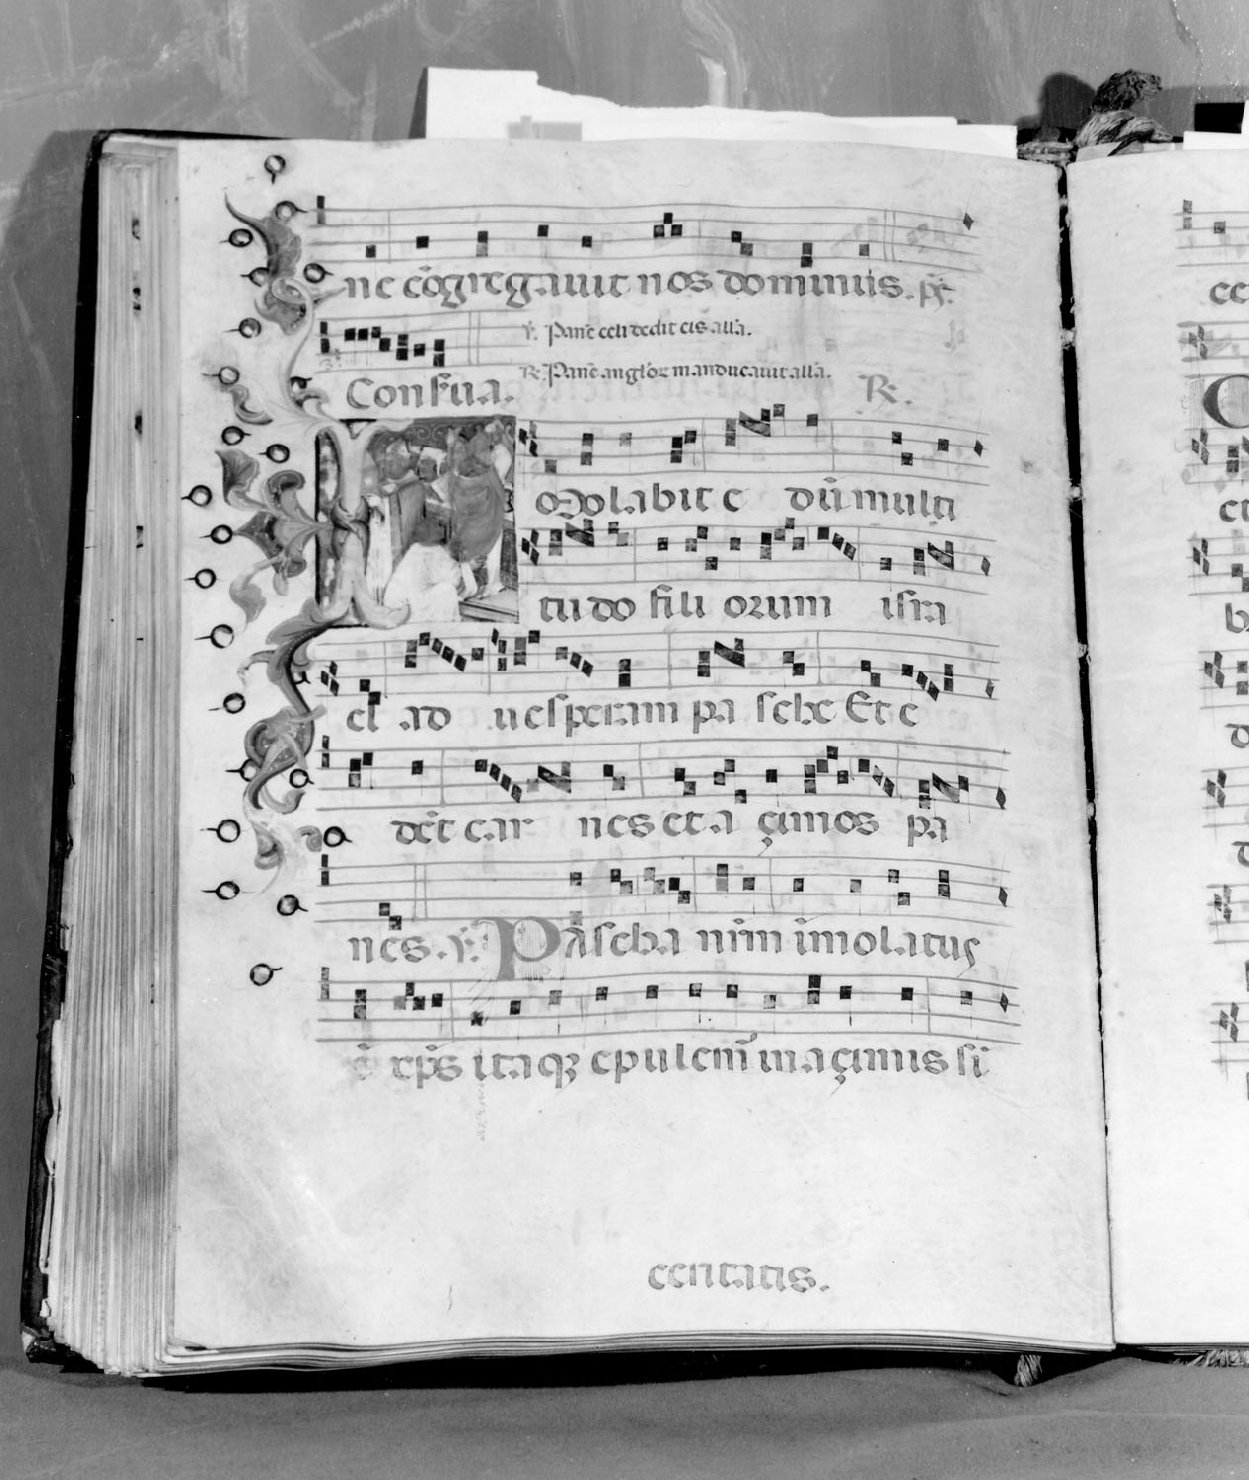 ne cōgregauit nos dominus. p̄s.
℣. Panē celi dedit eis alla.
Confr̄ua. ℟. Panē angl'oꝛ manducauit alla. ℟.
Immolabit e dū multi
tu do fili orum isra
el ad uesperam pa sche Et e
det car nes et a çimos pa
nes. ℣. Pascha nr̄m īmolatus
ē xp̄s itaqꝫ epulem̄ in açimis si
ceritatis.